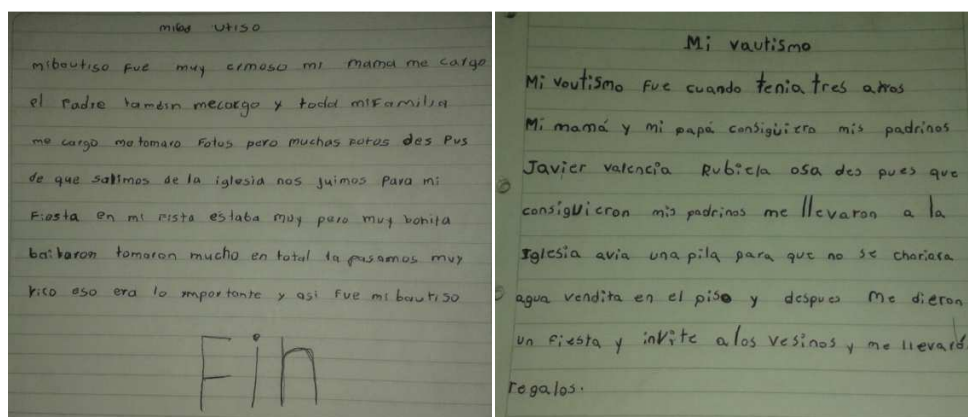 mibau utiso
mibautiso fue muy ermoso mi mama me cargo
el Padre tambin mecargo y toda mi familia
me cargo me tomaro Fotos pero muchas fotos des Pus
de que salimos de la iglesia nos juimos Para mi
Fiesta en mi fista estaba muy pero muy bonita
bailaron tomaron mucho en total la pasamos muy
rico eso era lo importante y asi fue mi bautiso
Fin
Mi vautismo
Mi voutismo Fue cuando tenia tres años
Mi mamá y mi papá consiguiero mis padrinos
Javier valencia Rubiela osa des pues que
consiguieron mis padrinos me llevaron a la
Iglesia avia una pila para que no se choriara
agua vendita en el piso y despues Me dieron
un fiesta y invite a los vesinos y me llevaró
regalos.